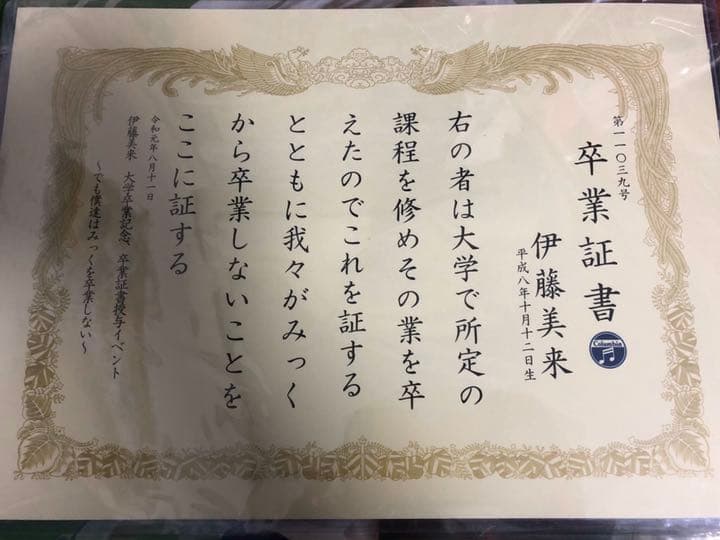 第一一〇三九号
卒業証書
Columbia
伊藤美来
平成八年十月十二日生
右の者は大学で所定の
課程を修めその業を卒
えたのでこれを証する
とともに我々がみっく
から卒業しないことを
ここに証する
令和元年八月十一日
伊藤美来 大学卒業記念、卒業証書授与イベント
～でも僕達はみっくを卒業しない～